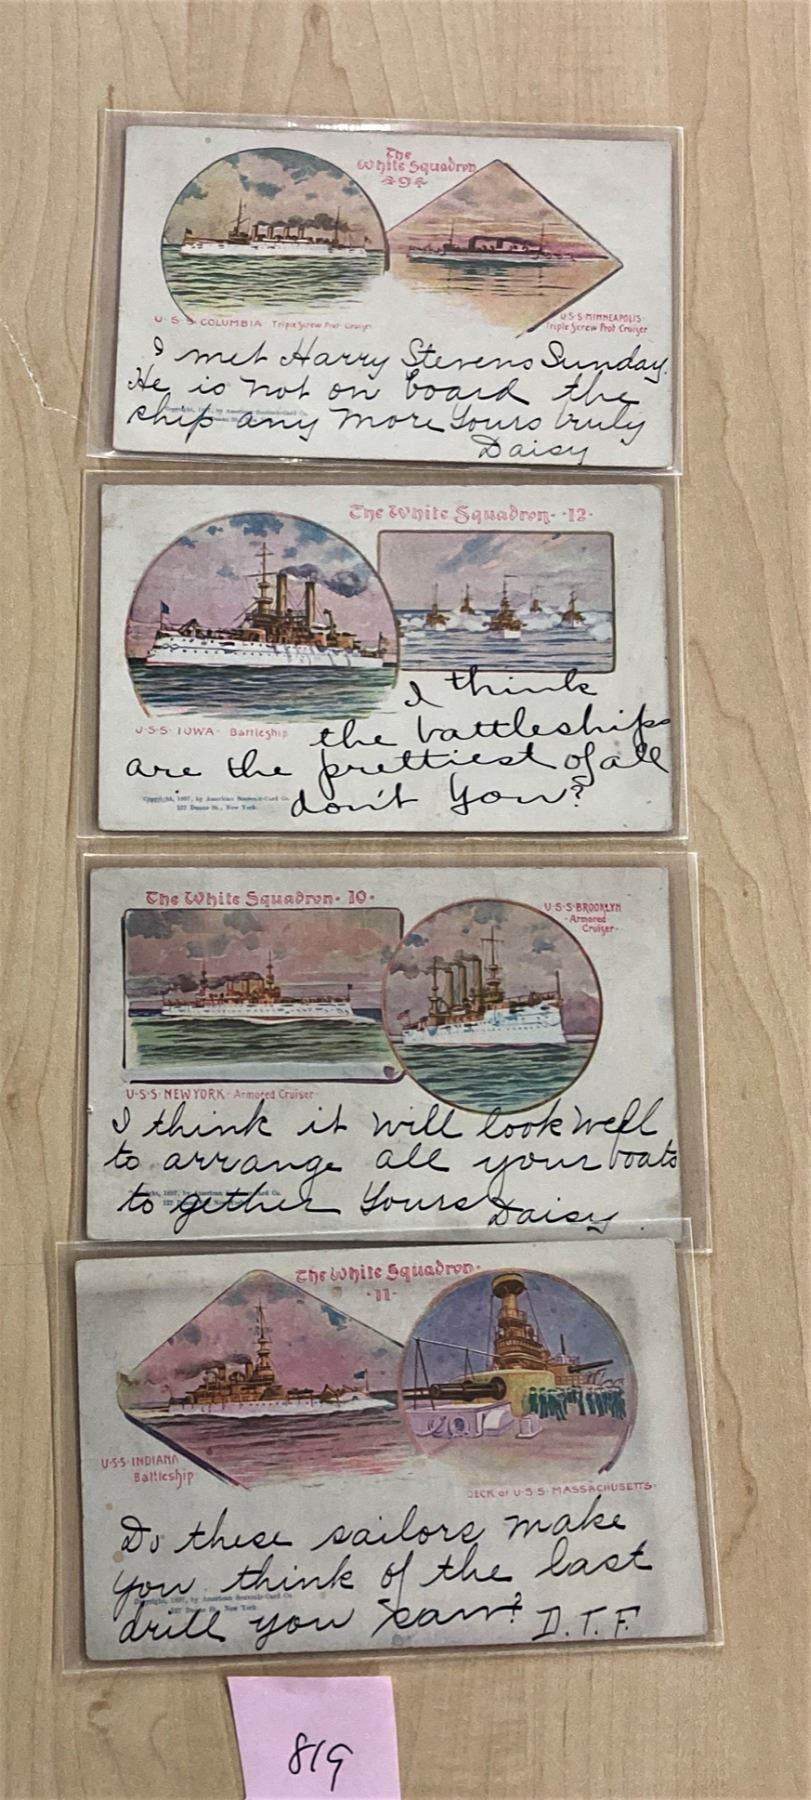 The
White Squadron
9
U·S·S·COLUMBIA· Triple Screw Prot· Cruiser
U·S·S·MINNEAPOLIS·
Triple Screw Prot Cruiser
I met Harry Stevens Sunday.
He is not on board the
ship any more Yours truly
Daisy
Copyright, 1897, by American Souvenir-Card Co.
The White Squadron·12·
U·S·S·IOWA· Battleship
I think
the battleships
are the prettiest of all
don't you?
Copyright, 1897, by American Souvenir-Card Co.
127 Duane St., New York
The White Squadron·10·
U·S·S·BROOKLYN
·Armored
Cruiser·
U·S·S·NEW YORK·Armored Cruiser·
I think it will look well
to arrange all your boats
to gether Yours Daisy
1897, by American Souvenir-Card Co.
The White Squadron·
·11·
U·S·S·INDIANA
Battleship
DECK of U·S·S·MASSACHUSETTS·
Do these sailors make
you think of the last
drill you saw? D.T.F.
Copyright, 1897, by American Souvenir-Card Co.
127 Duane St., New York
819